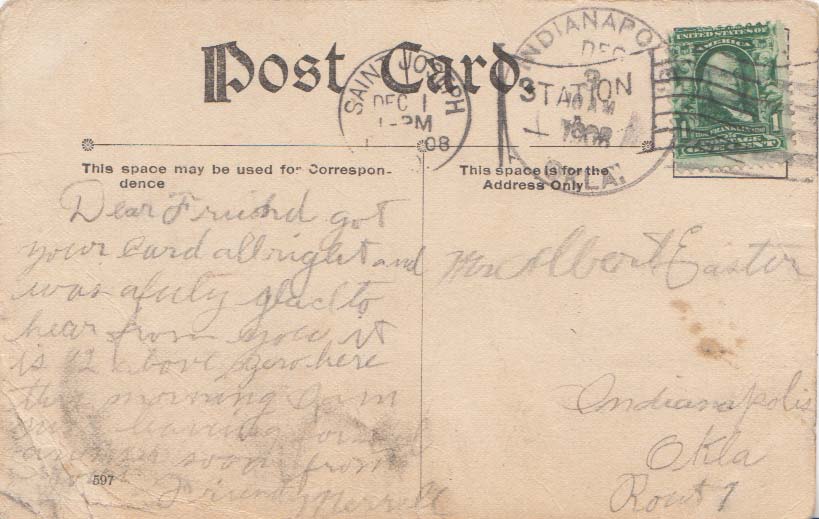 Post Card.
SAINT JOSEPH
DEC 1
1-PM
08
INDIANAPOLIS
DEC
STATION
AM
1908
OKLA.
UNITED STATES OF
AMERICA
1
This space may be used for Correspon-
dence
This space is for the
Address Only
Dear Friend got
your Card allright and
was afuly glad to
hear from you it
is 12 above zero here
this morning am
leaving for
answer soon from
Friend Merrell
597
Albert Easter
Indianapolis
Okla
Rout 1